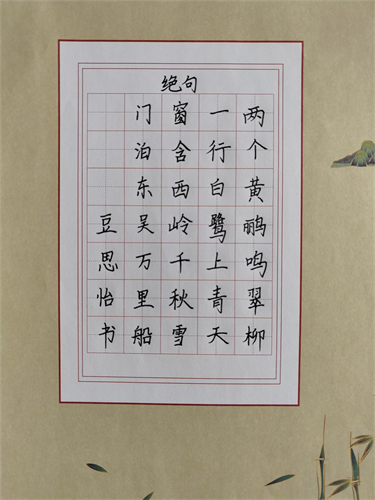 绝句
两个黄鹂鸣翠柳
一行白鹭上青天
窗含西岭千秋雪
门泊东吴万里船
豆思怡书